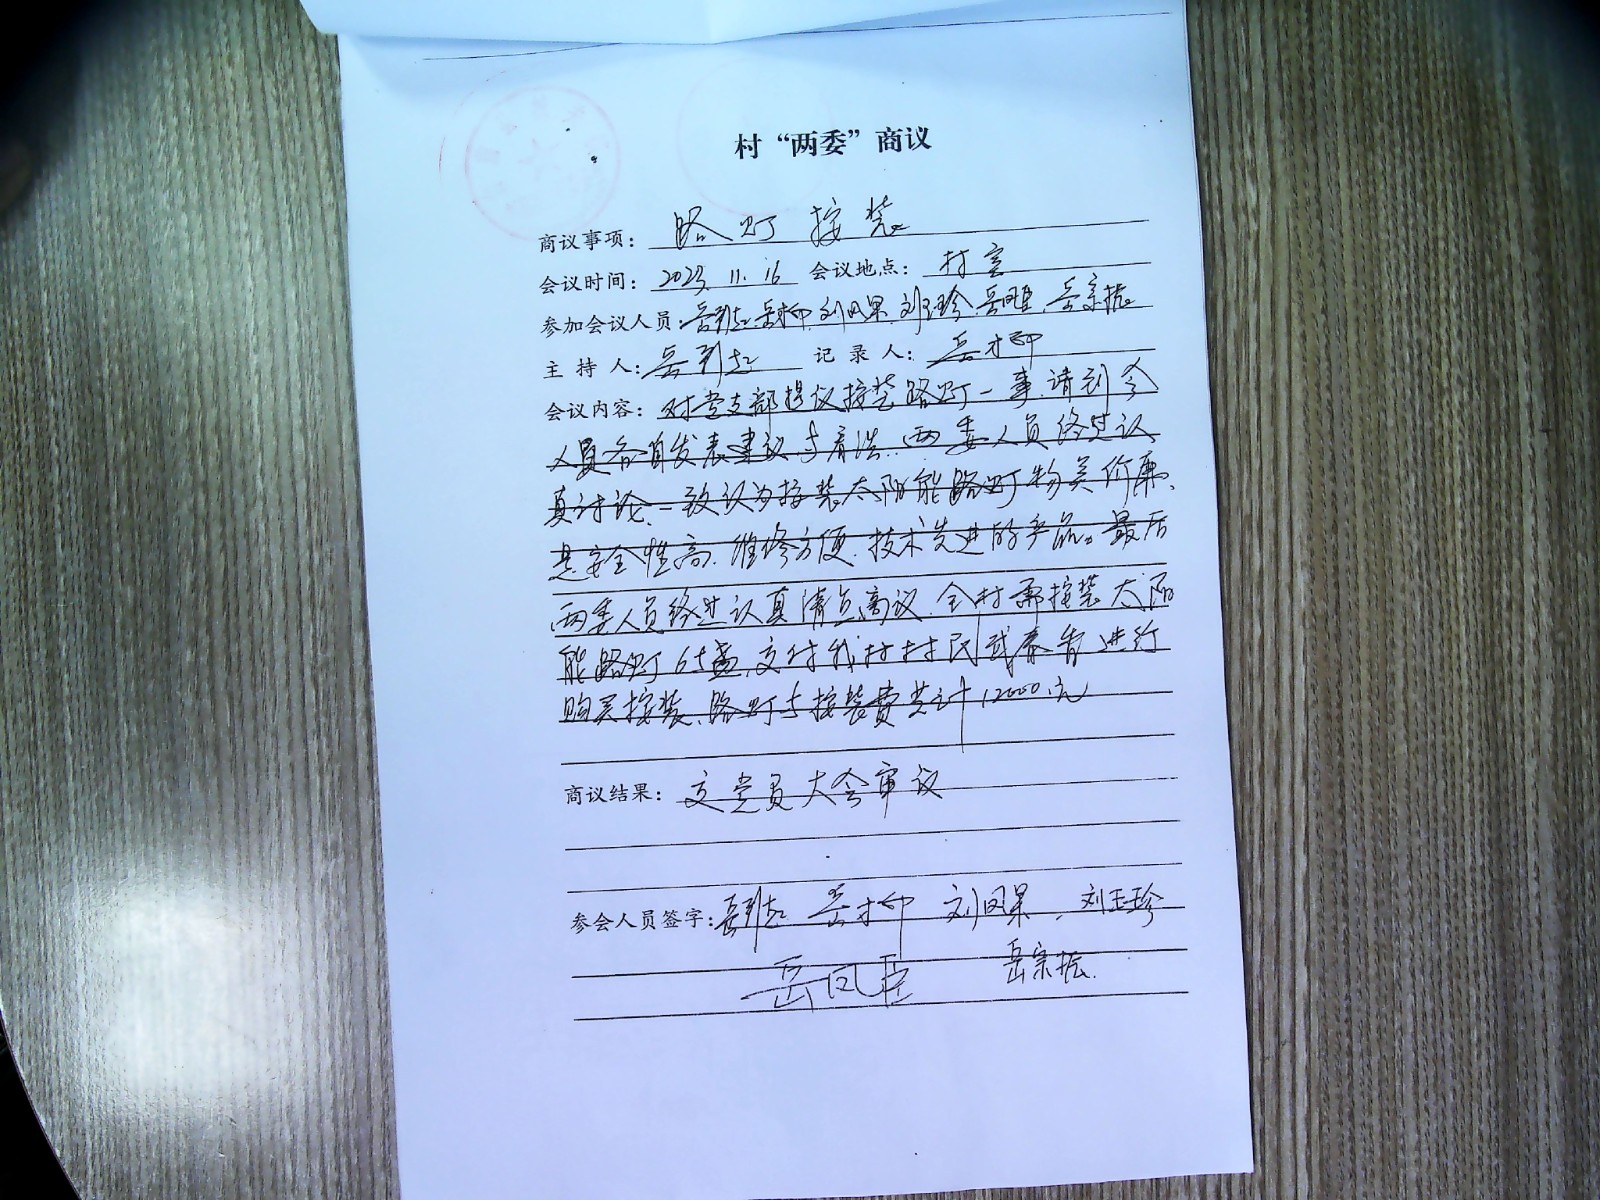 村“两委”商议
商议事项： 路灯按装
会议时间： 2023.11.16 会议地点： 村室
参加会议人员： 岳才柳 刘凤果 刘玉珍 岳宗振
主持人： 记录人： 岳才柳
会议内容： 对党支部提议按装路灯一事，请到会
人员各自发表建议与看法，两委人员经过认
真讨论，一致认为按装太阳能路灯物美价廉、
是安全性高、维修方便、技术先进的产品。最后
两委人员经过认真清点商议，全村需按装太阳
能路灯65盏，交付我村村民武春 进行
购买按装，路灯与按装费共计12000元
商议结果： 交党员大会审议
参会人员签字： 岳才柳 刘凤果，刘玉珍
岳凤臣 岳宗振